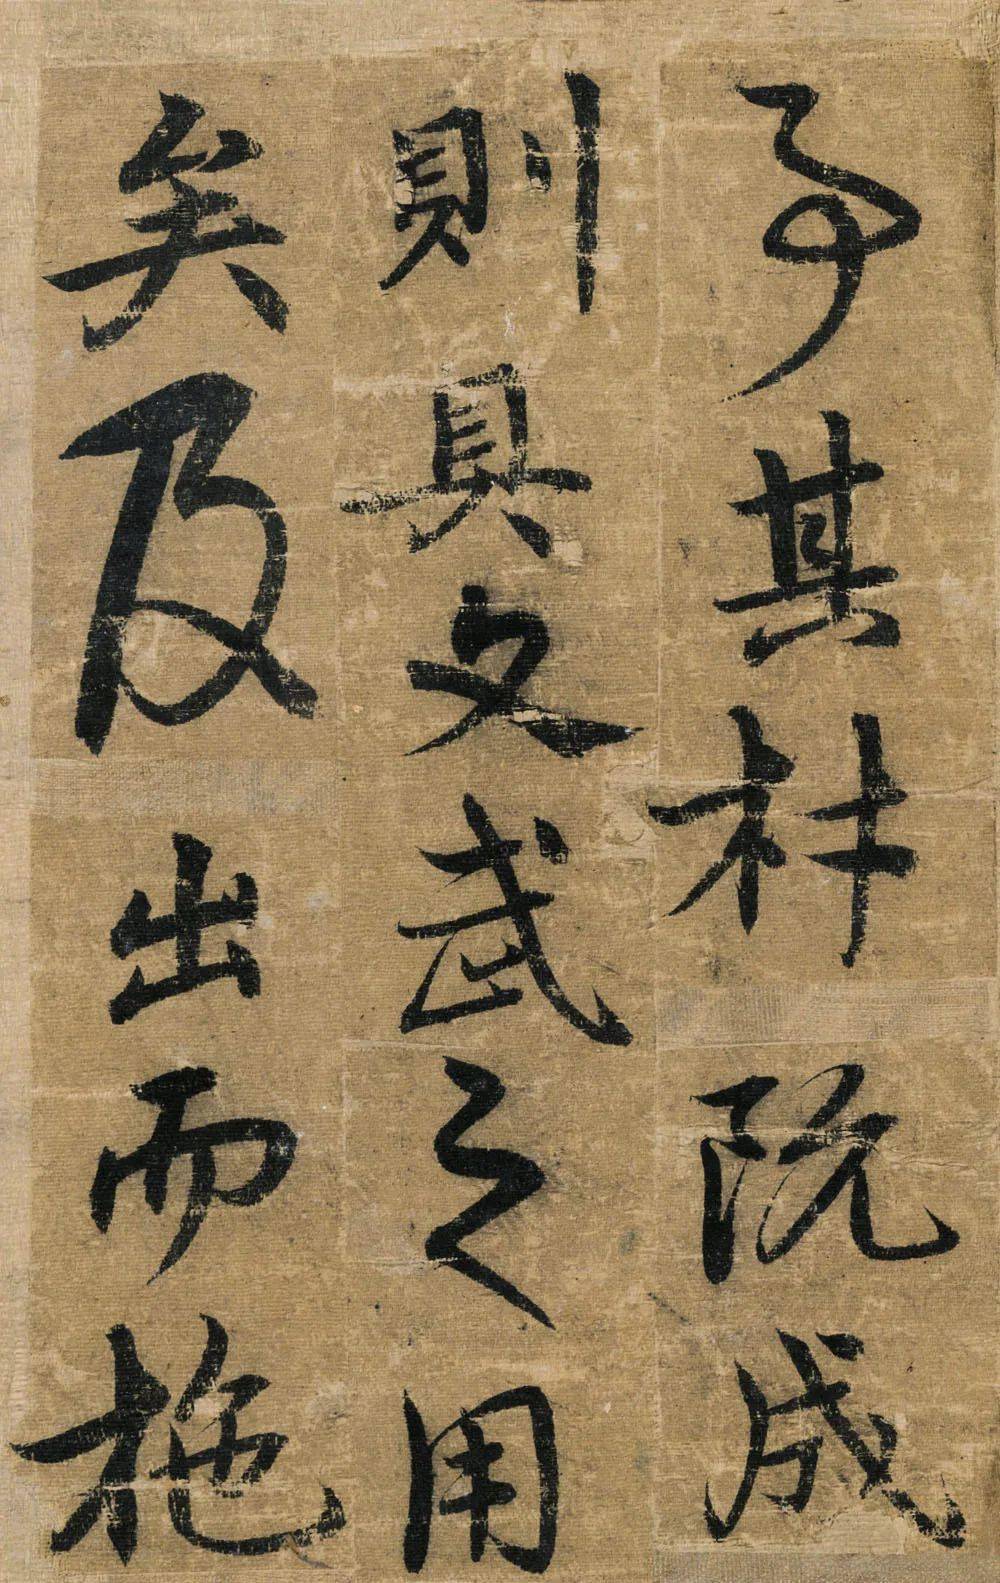 子其材既成
則具文武之用
矣及出而施